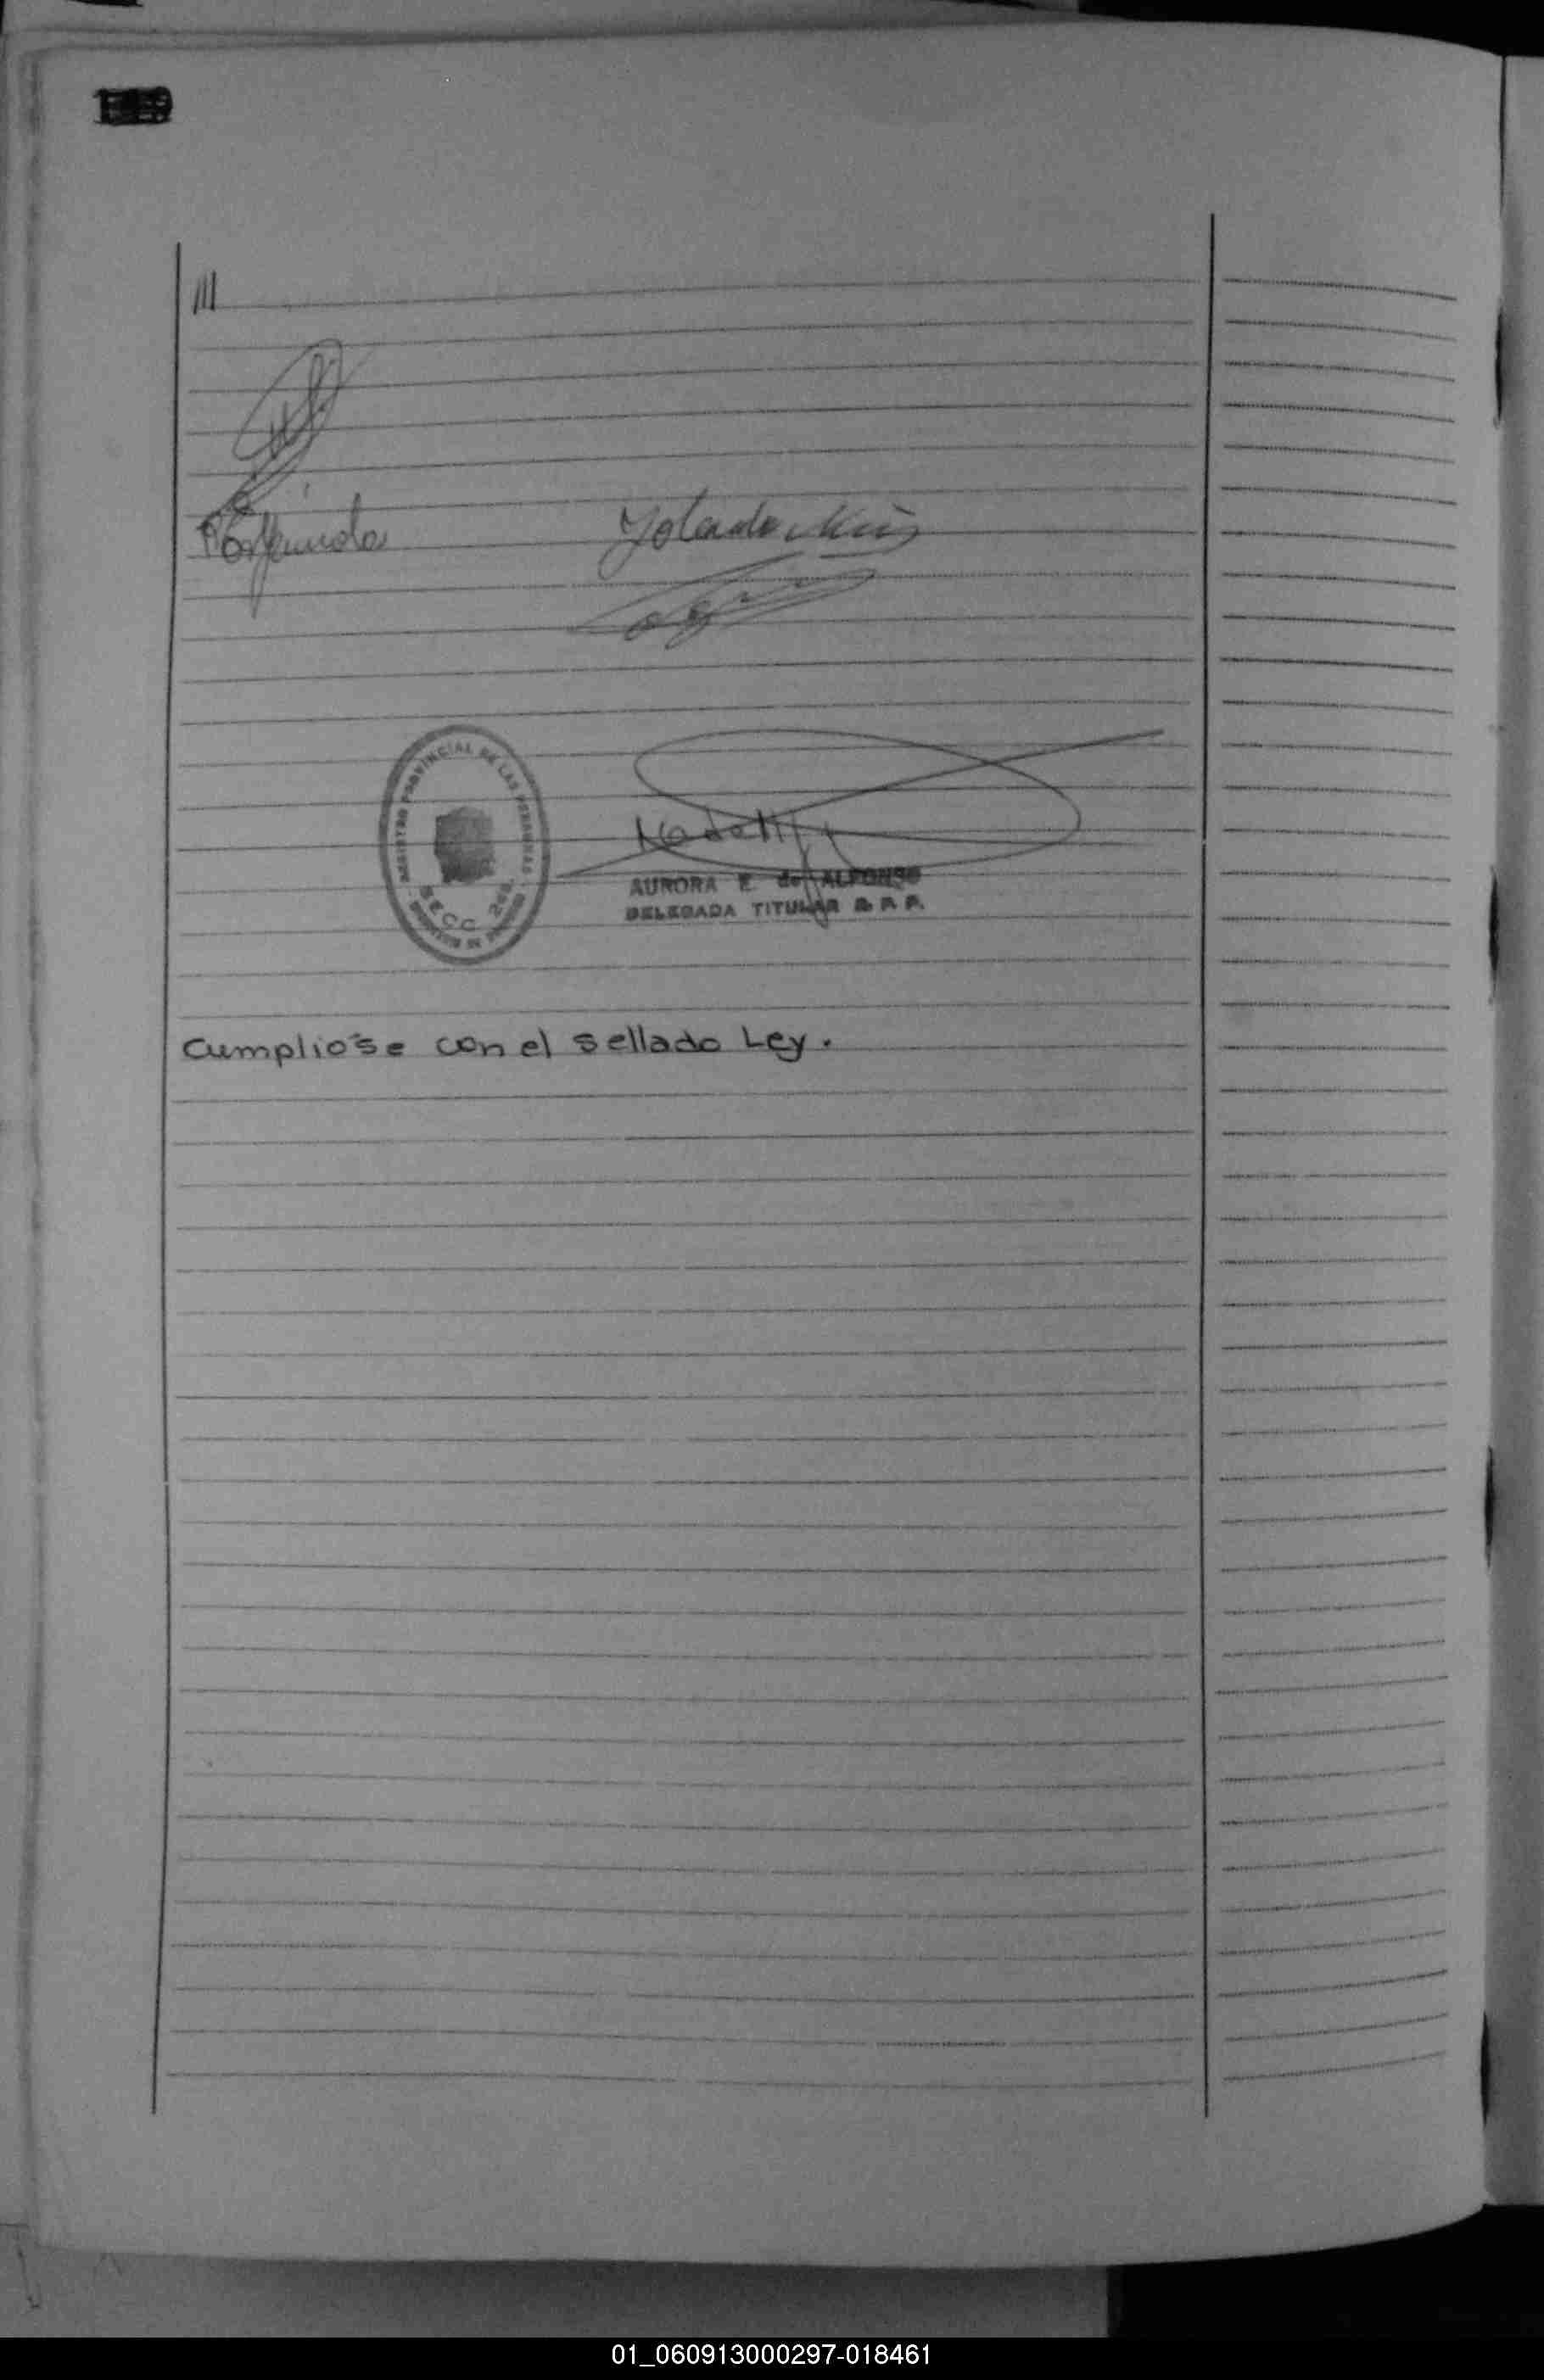 ///
Yolanda
REGISTRO PROVINCIAL DE LAS PERSONAS
SECC. 2da.
AURORA E. de ALFONSO
DELEGADA TITULAR R. P. P.
Cumplióse con el sellado Ley.
01_060913000297-018461